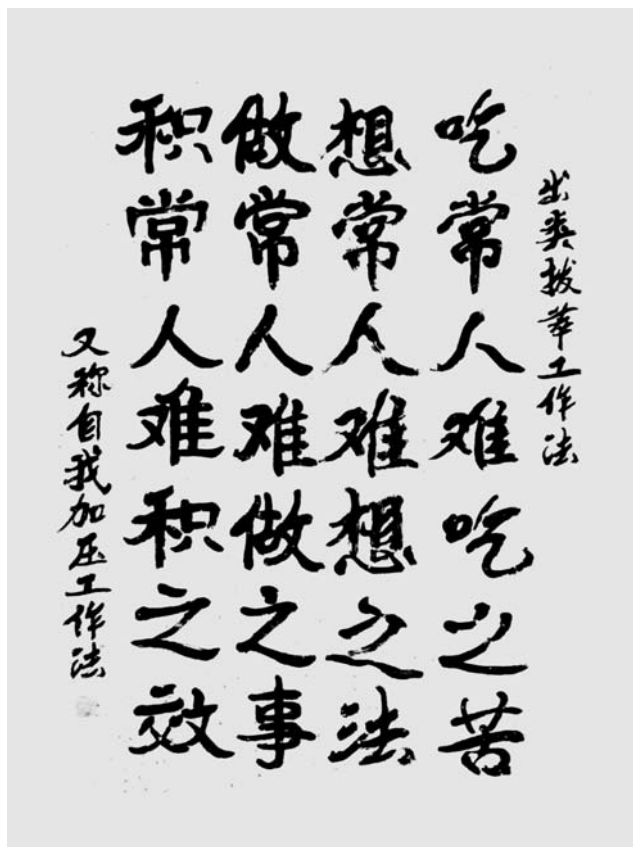 出类拔萃工作法
吃常人难吃之苦
想常人难想之法
做常人难做之事
积常人难积之效
又称自我加压工作法